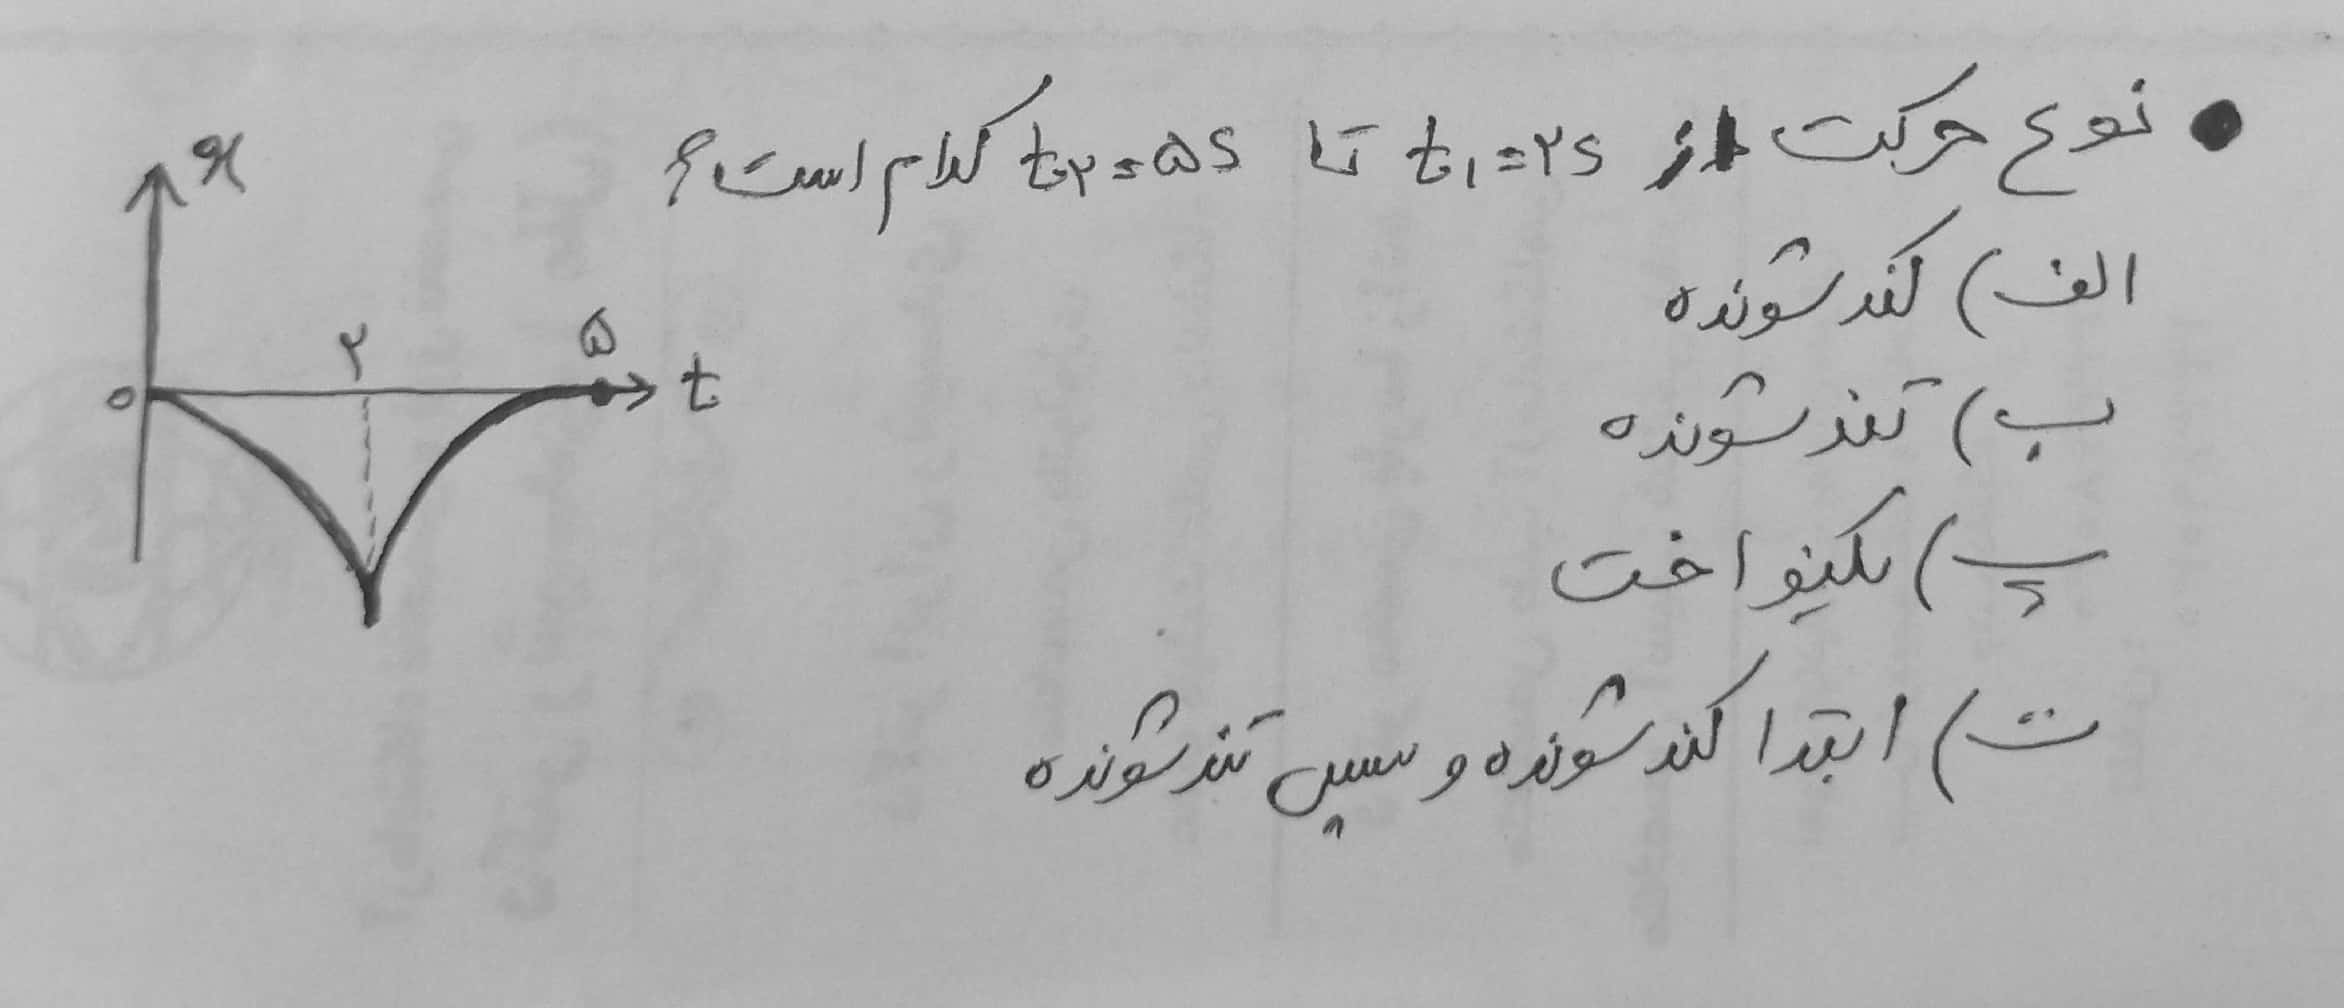 ● نوع حرکت از t₁=۲s تا t₂=۵s کدام است؟
الف) کندشونده
ب) تندشونده
پ) یکنواخت
ت) ابتدا کندشونده و سپس تندشونده
x
۲
۵
۰
t